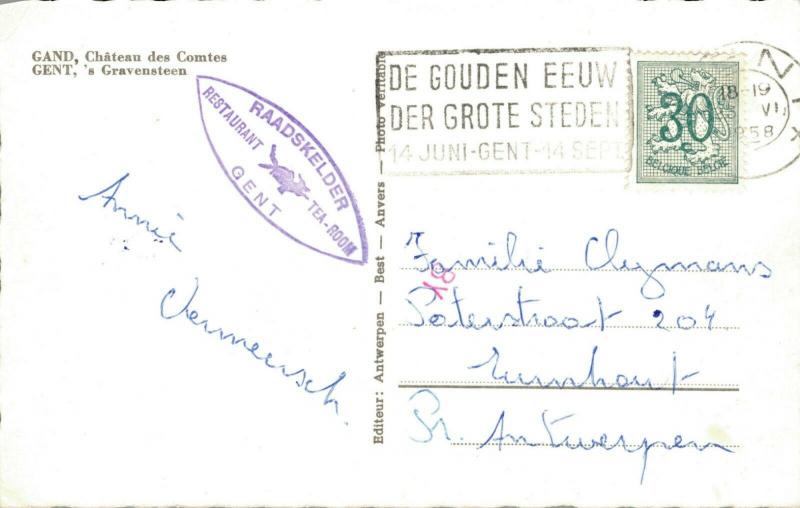 GAND, Château des Comtes
GENT, 's Gravensteen
RAADSKELDER
RESTAURANT
TEA-ROOM
GENT
Annie
Vermeersch.
Editeur: Antwerpen — Best — Anvers — Photo véritable
DE GOUDEN EEUW
DER GROTE STEDEN
14 JUNI-GENT-14 SEPT
18-19
VII
1958
30
BELGIQUE BELGIE
Familie Cleymans
Paterstraat 204
Turnhout
Pr. Antwerpen